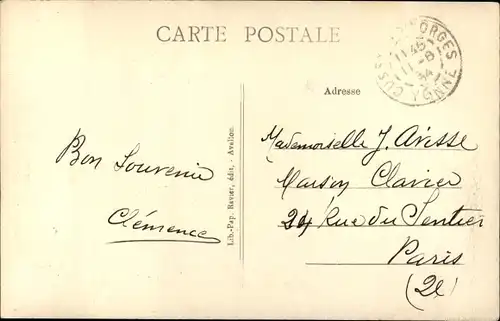 CARTE POSTALE
CUSSY LES FORGES
1145
11-8
34
YONNE
Adresse
Bon Souvenir
Clémence
Lib.-Pap. Ravier, édit. - Avallon.
Mademoiselle J. Avisse
Maison Clavier
24 Rue du Sentier
Paris
(2e)